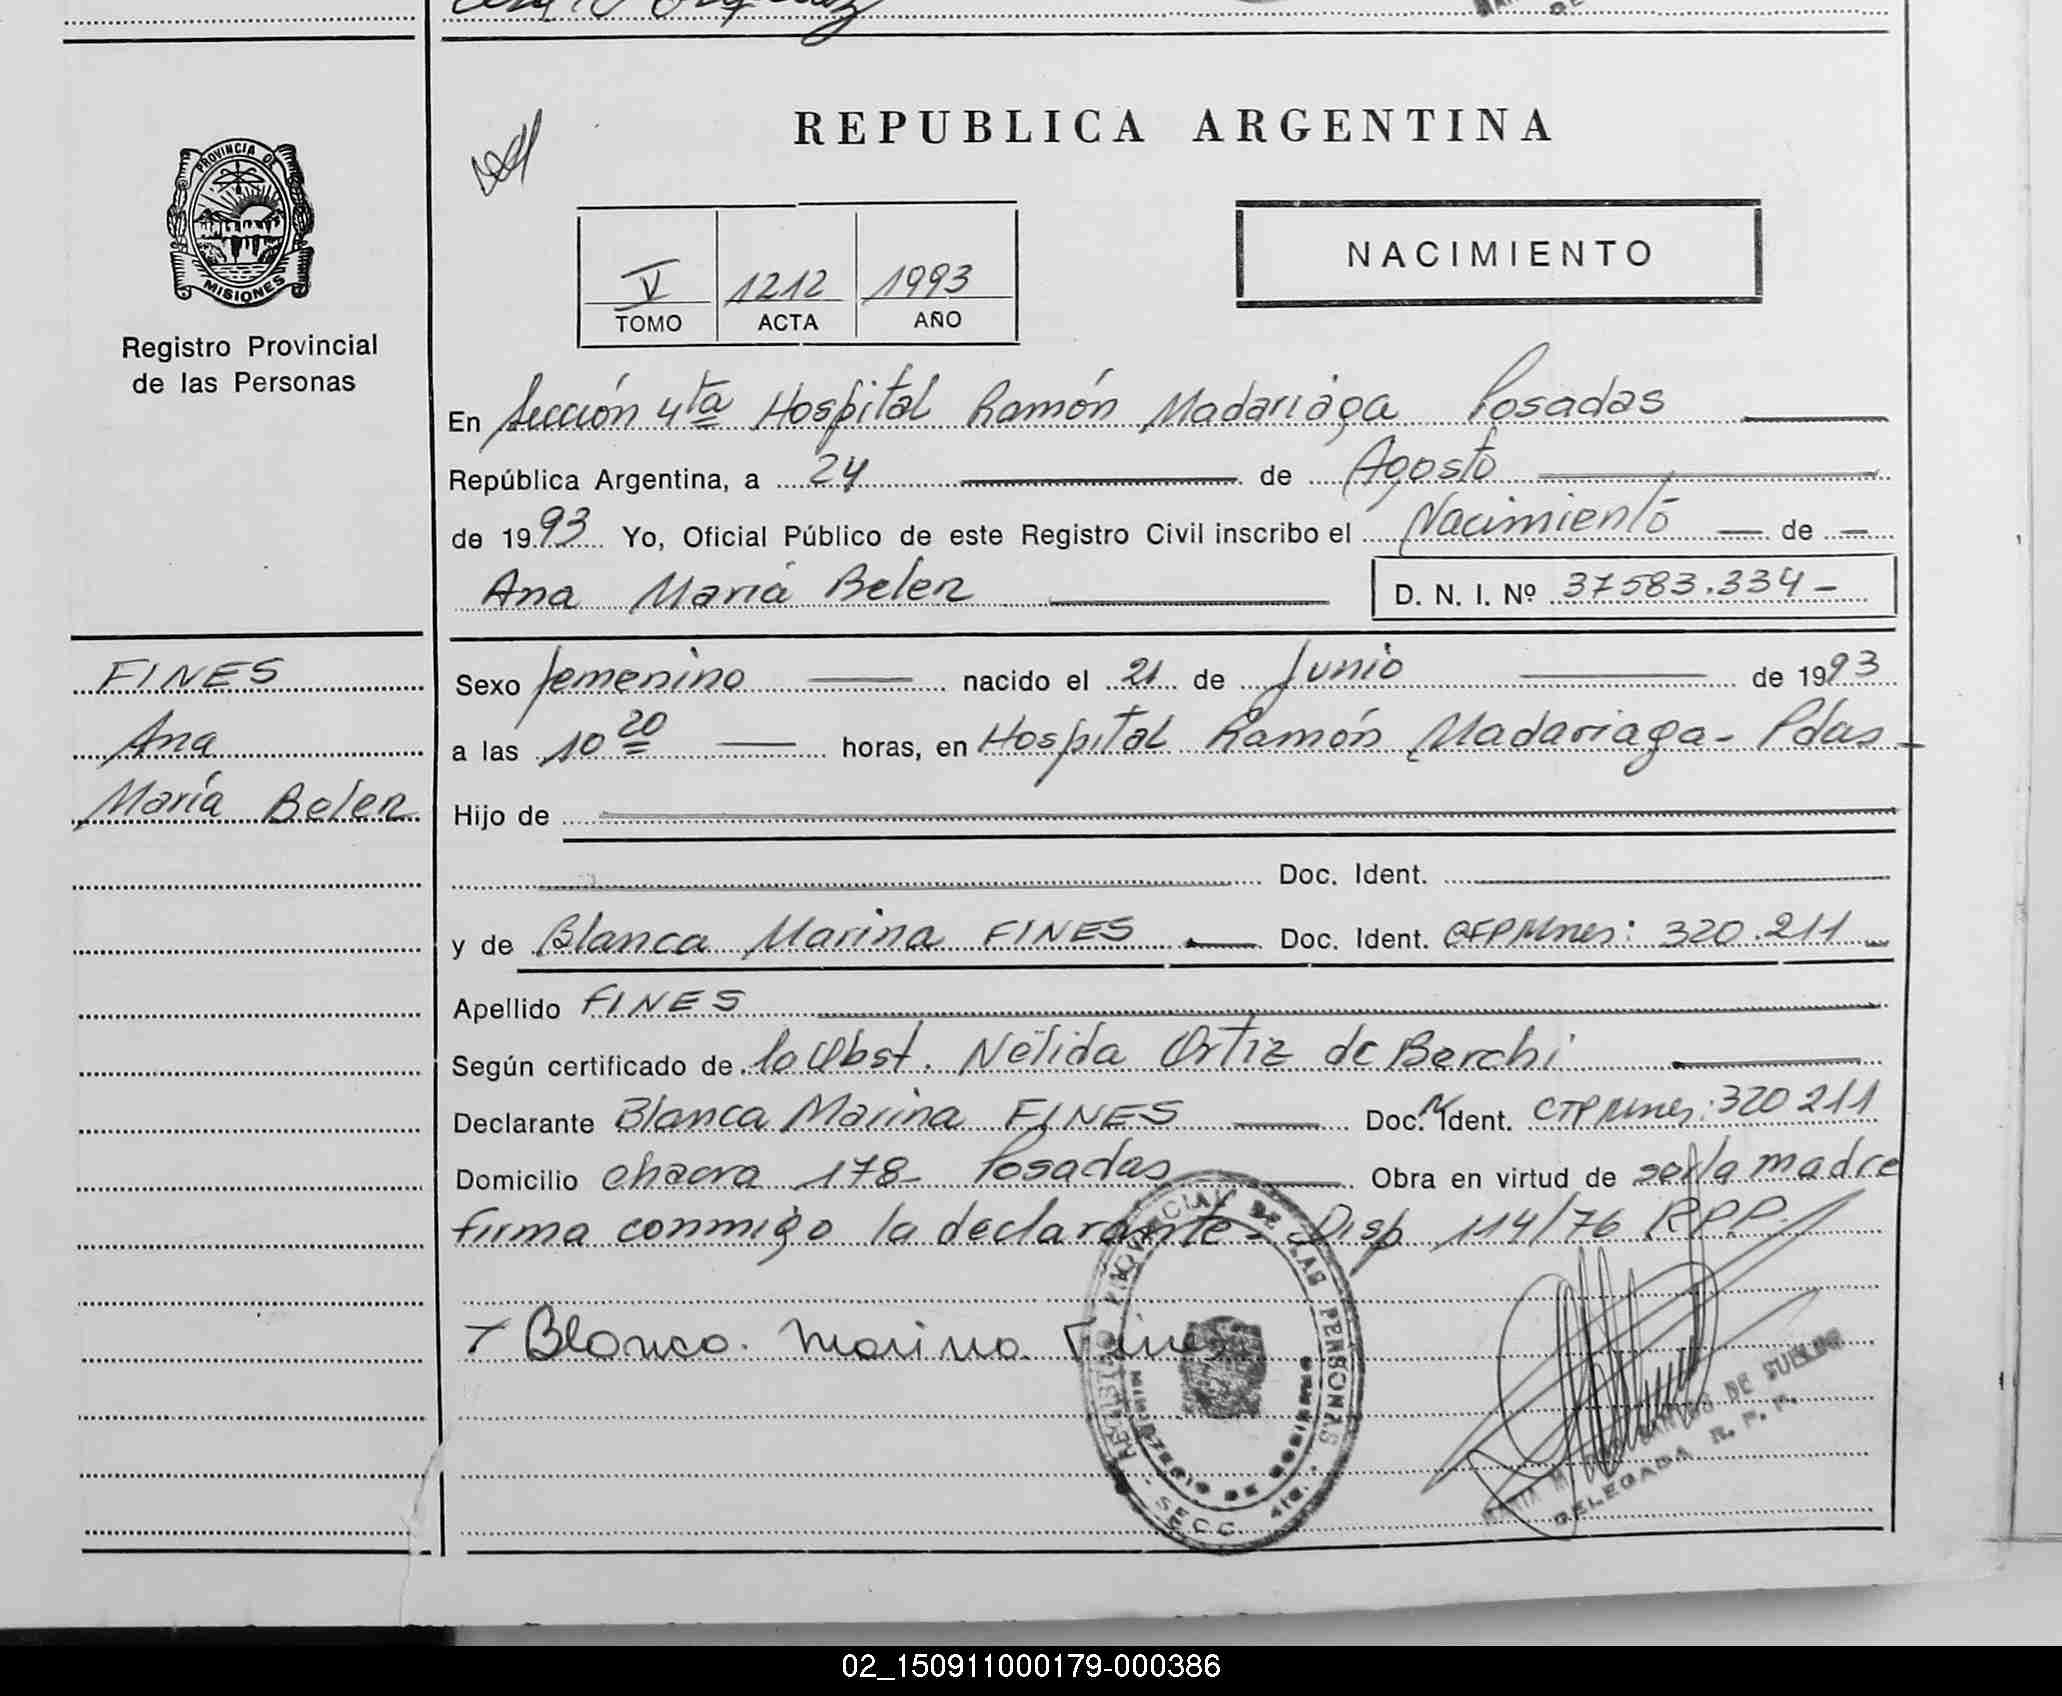 REPUBLICA ARGENTINA
PROVINCIA DE
MISIONES
Registro Provincial
de las Personas
V 1212 1993
TOMO ACTA AÑO
NACIMIENTO
En Sección 4ta Hospital Ramón Madariaga Posadas
República Argentina, a 24 de Agosto
de 1993 Yo, Oficial Público de este Registro Civil inscribo el Nacimiento de
Ana María Belen D. N. I. Nº 37583.334-
FINES
Ana
María Belen
Sexo femenino nacido el 21 de Junio de 1993
a las 10 20 horas, en Hospital Ramón Madariaga - Pdas -
Hijo de
Doc. Ident.
y de Blanca Marina FINES Doc. Ident. 320.211
Apellido FINES
Según certificado de la Obst. Nélida Ortiz de Berchi
Declarante Blanca Marina FINES Doc. Ident. 320211
Domicilio chacra 178 - Posadas Obra en virtud de ser la madre
firma conmigo la declarante - Disp 114/76 RPP.
Blanca Marina Fines
REGISTRO PROVINCIAL DE LAS PERSONAS
MINISTERIO DE GOBIERNO
- SECC. 4ta. -
DELEGADA R. P. P.
02_150911000179-000386